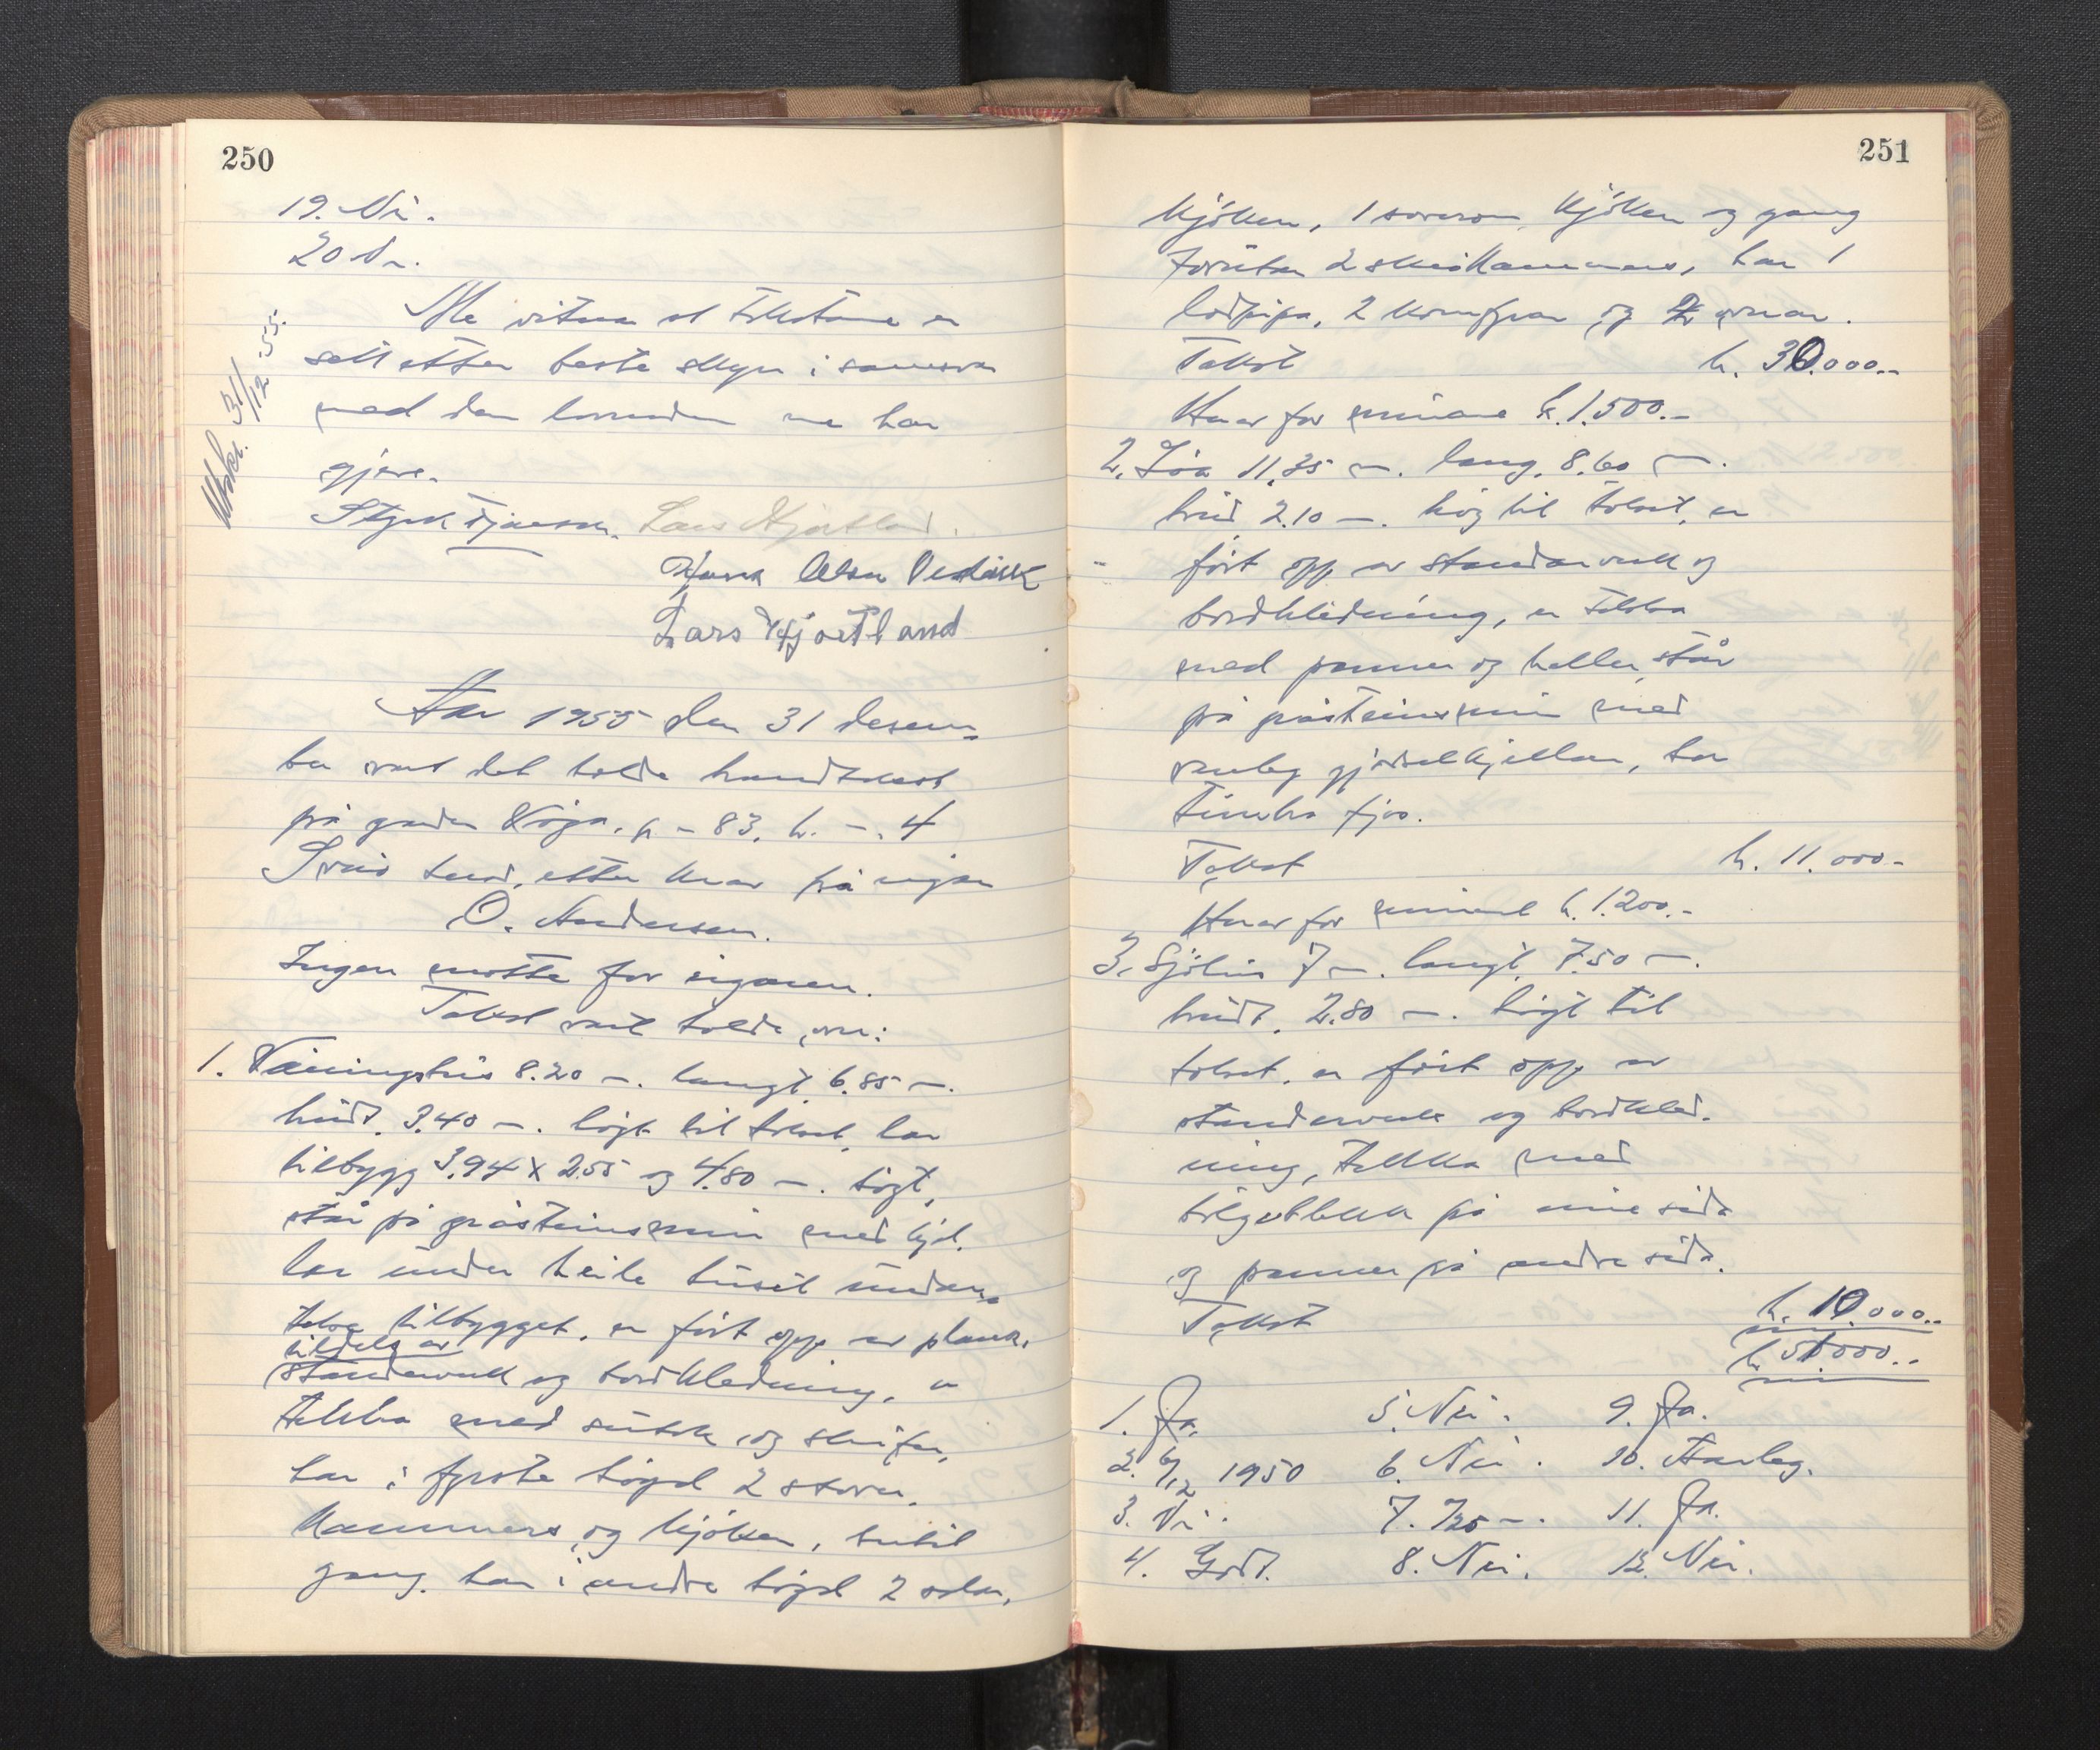 250
19. Nei.
20 Nei.
Me vitnar at takstane er
sett etter beste skyn i samsvar
med den lovnaden me har
gjeve.
Utskr. 31/12-55.
Styrk Tjønn. Lars Hjortland.
Lars Hjortland
Aar 1955 den 31 desem-
ber vart det halde branntakst
på garden g. - 83, b. - 4
herad, etter krav frå eigar
O. Andersen.
Ingen møtte for eigaren.
Takst vart halde over:
1. Våningshus 8.20 m. langt, 6.85 m.
breidt, 3.40 m. høgt til toket, har
tilbygg 3.94 x 2.55 og 4.80 m. høgt,
står på gråsteinsmur med kjel.
lar under heile huset undan-
teke tilbygget, er ført opp av plank,
tildels av
standerverk og bordkledning, er
tekka med sutak og skifer,
har i fyrste høgd 2 stover,
kammers og kjøken, intil
gang, har i andre høgd 2 salar,
251
kjøken, 1 soverom, kjøken og gang
forutan 2 kammers, har 1
lodpipa, 2 komfyrar og 2 omnar.
Takst k. 30.000.-
Herav for murane k. 1.500.-
2. Løa 11,35 m. lang, 8.60 m.
breid 2.10 m. høg til toket, er
ført opp av standarverk og
bordkledning, er tekka
med panner og heller, står
på gråsteinsmur med
vanleg gjødselkjellar, har
timbra fjos.
Takst k. 11.000.-
Herav for murane k. 1.200.-
3. Sjøhus 7 m. langt, 7.50 m.
breidt, 2.80 m. høgt til
toket, er ført opp av
standerverk og bordkled.
ning, tekka med
bølgeblekk på eine sida
og panner på andre sida.
Takst k. 10.000.-
k. 51000.-
1. Ja. 5. Nei. 9. Ja.
2. 6/12 1950 6. Nei. 10. Aarleg.
3. Nei. 7. 725 m. 11. Ja.
4. Godt. 8. Nei. 12. Nei.